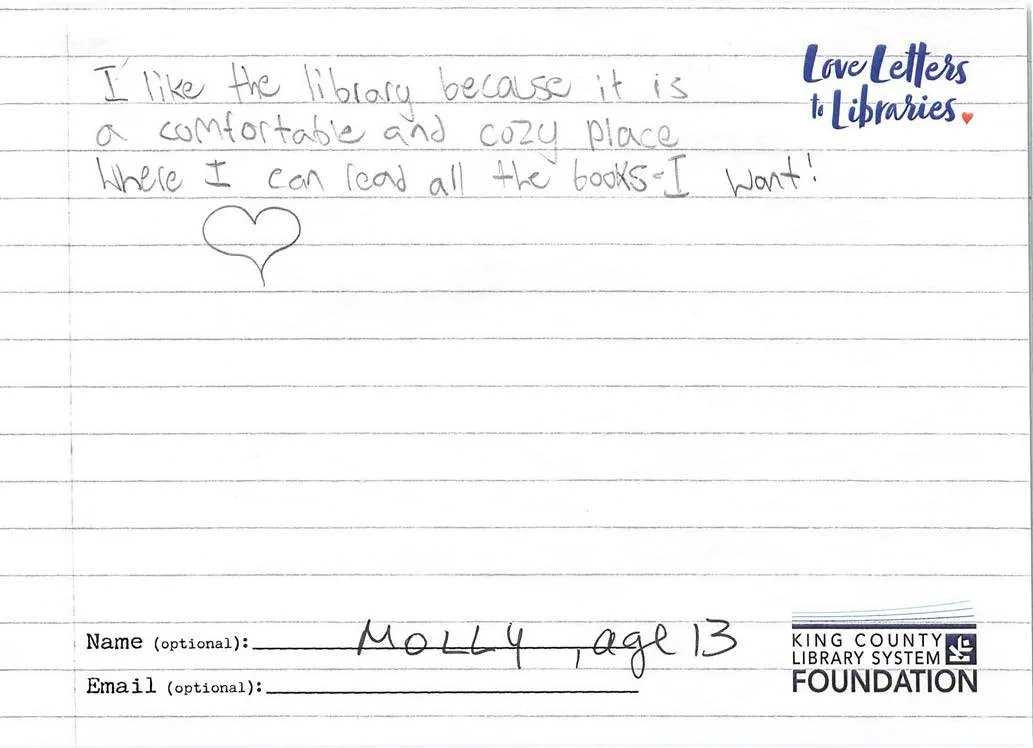 I like the library because it is
a comfortable and cozy place
Where I can read all the books I want!
Love Letters
to Libraries
Name (optional): MOLLY, age 13
Email (optional):
KING COUNTY
LIBRARY SYSTEM
FOUNDATION